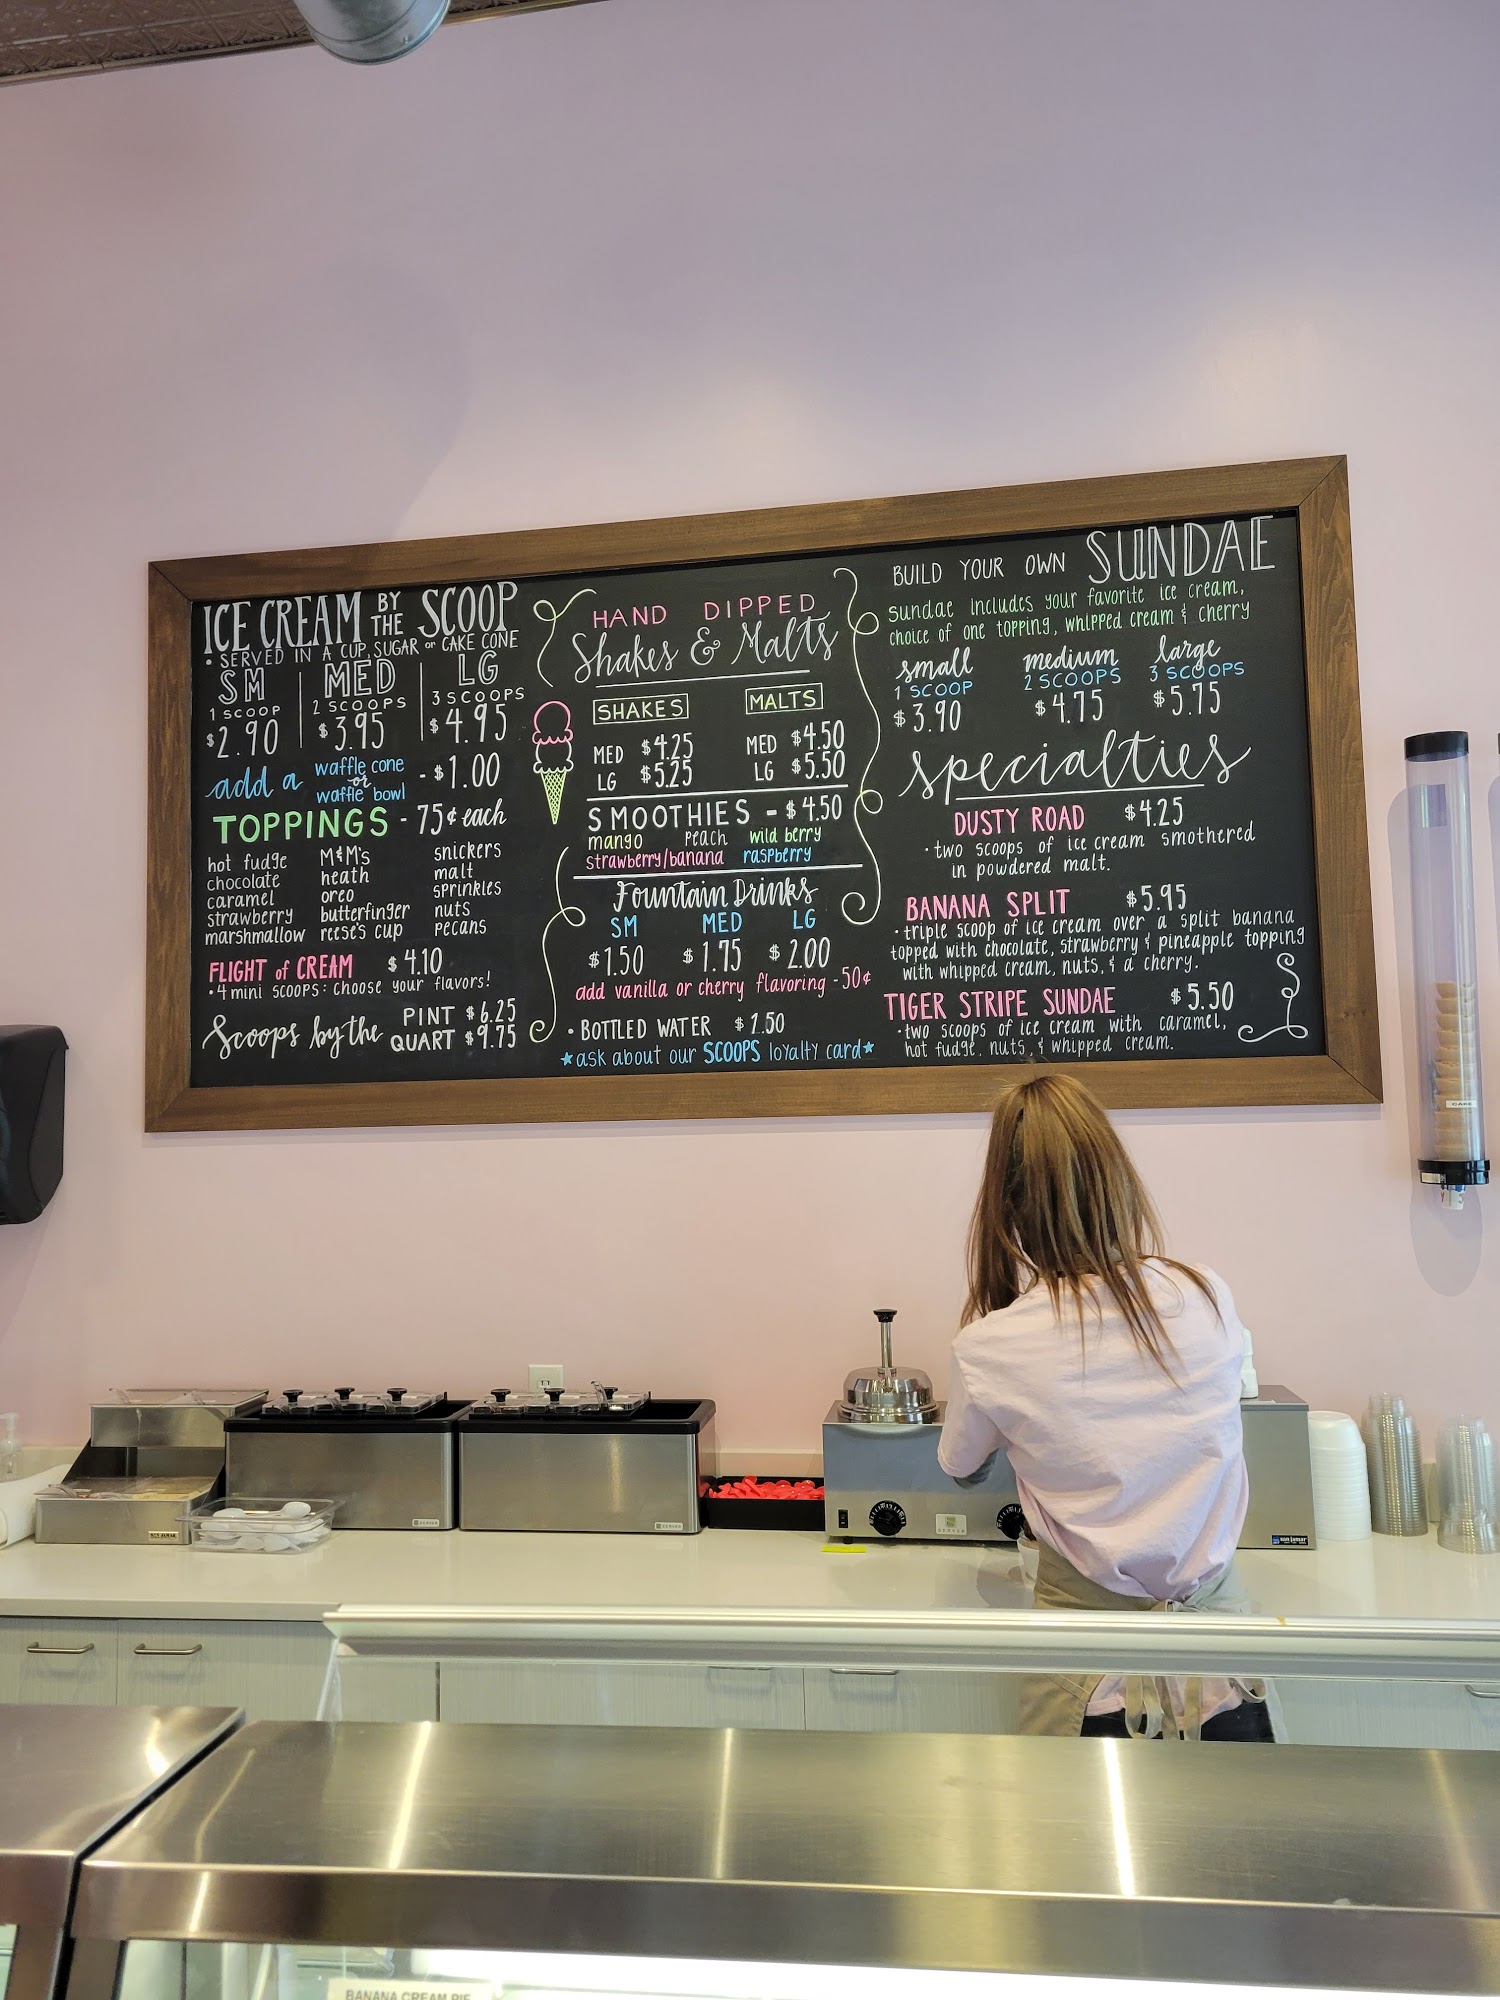 ICE CREAM BY THE SCOOP
• SERVED IN A CUP, SUGAR or CAKE CONE
SM MED LG
1 SCOOP 2 SCOOPS 3 SCOOPS
$2.90 $3.95 $4.95
add a waffle cone -or- waffle bowl - $1.00
TOPPINGS - 75¢ each
hot fudge M&M's snickers
chocolate heath malt
caramel oreo sprinkles
strawberry butterfinger nuts
marshmallow reese's cup pecans
FLIGHT of CREAM $4.10
• 4 mini scoops: choose your flavors!
Scoops by the PINT $6.25
QUART $9.75
HAND DIPPED
Shakes & Malts
SHAKES MALTS
MED $4.25 MED $4.50
LG $5.25 LG $5.50
SMOOTHIES - $4.50
mango peach wild berry
strawberry/banana raspberry
Fountain Drinks
SM MED LG
$1.50 $1.75 $2.00
add vanilla or cherry flavoring - 50¢
• BOTTLED WATER $1.50
★ask about our SCOOPS loyalty card★
BUILD YOUR OWN SUNDAE
sundae includes your favorite ice cream,
choice of one topping, whipped cream & cherry
small medium large
1 SCOOP 2 SCOOPS 3 SCOOPS
$3.90 $4.75 $5.75
specialties
DUSTY ROAD $4.25
• two scoops of ice cream smothered
in powdered malt.
BANANA SPLIT $5.95
• triple scoop of ice cream over a split banana
topped with chocolate, strawberry & pineapple topping
with whipped cream, nuts, & a cherry.
TIGER STRIPE SUNDAE $5.50
• two scoops of ice cream with caramel,
hot fudge, nuts, & whipped cream.
CAKE
SERVER
SERVER
SERVER
BANANA CREAM PIE